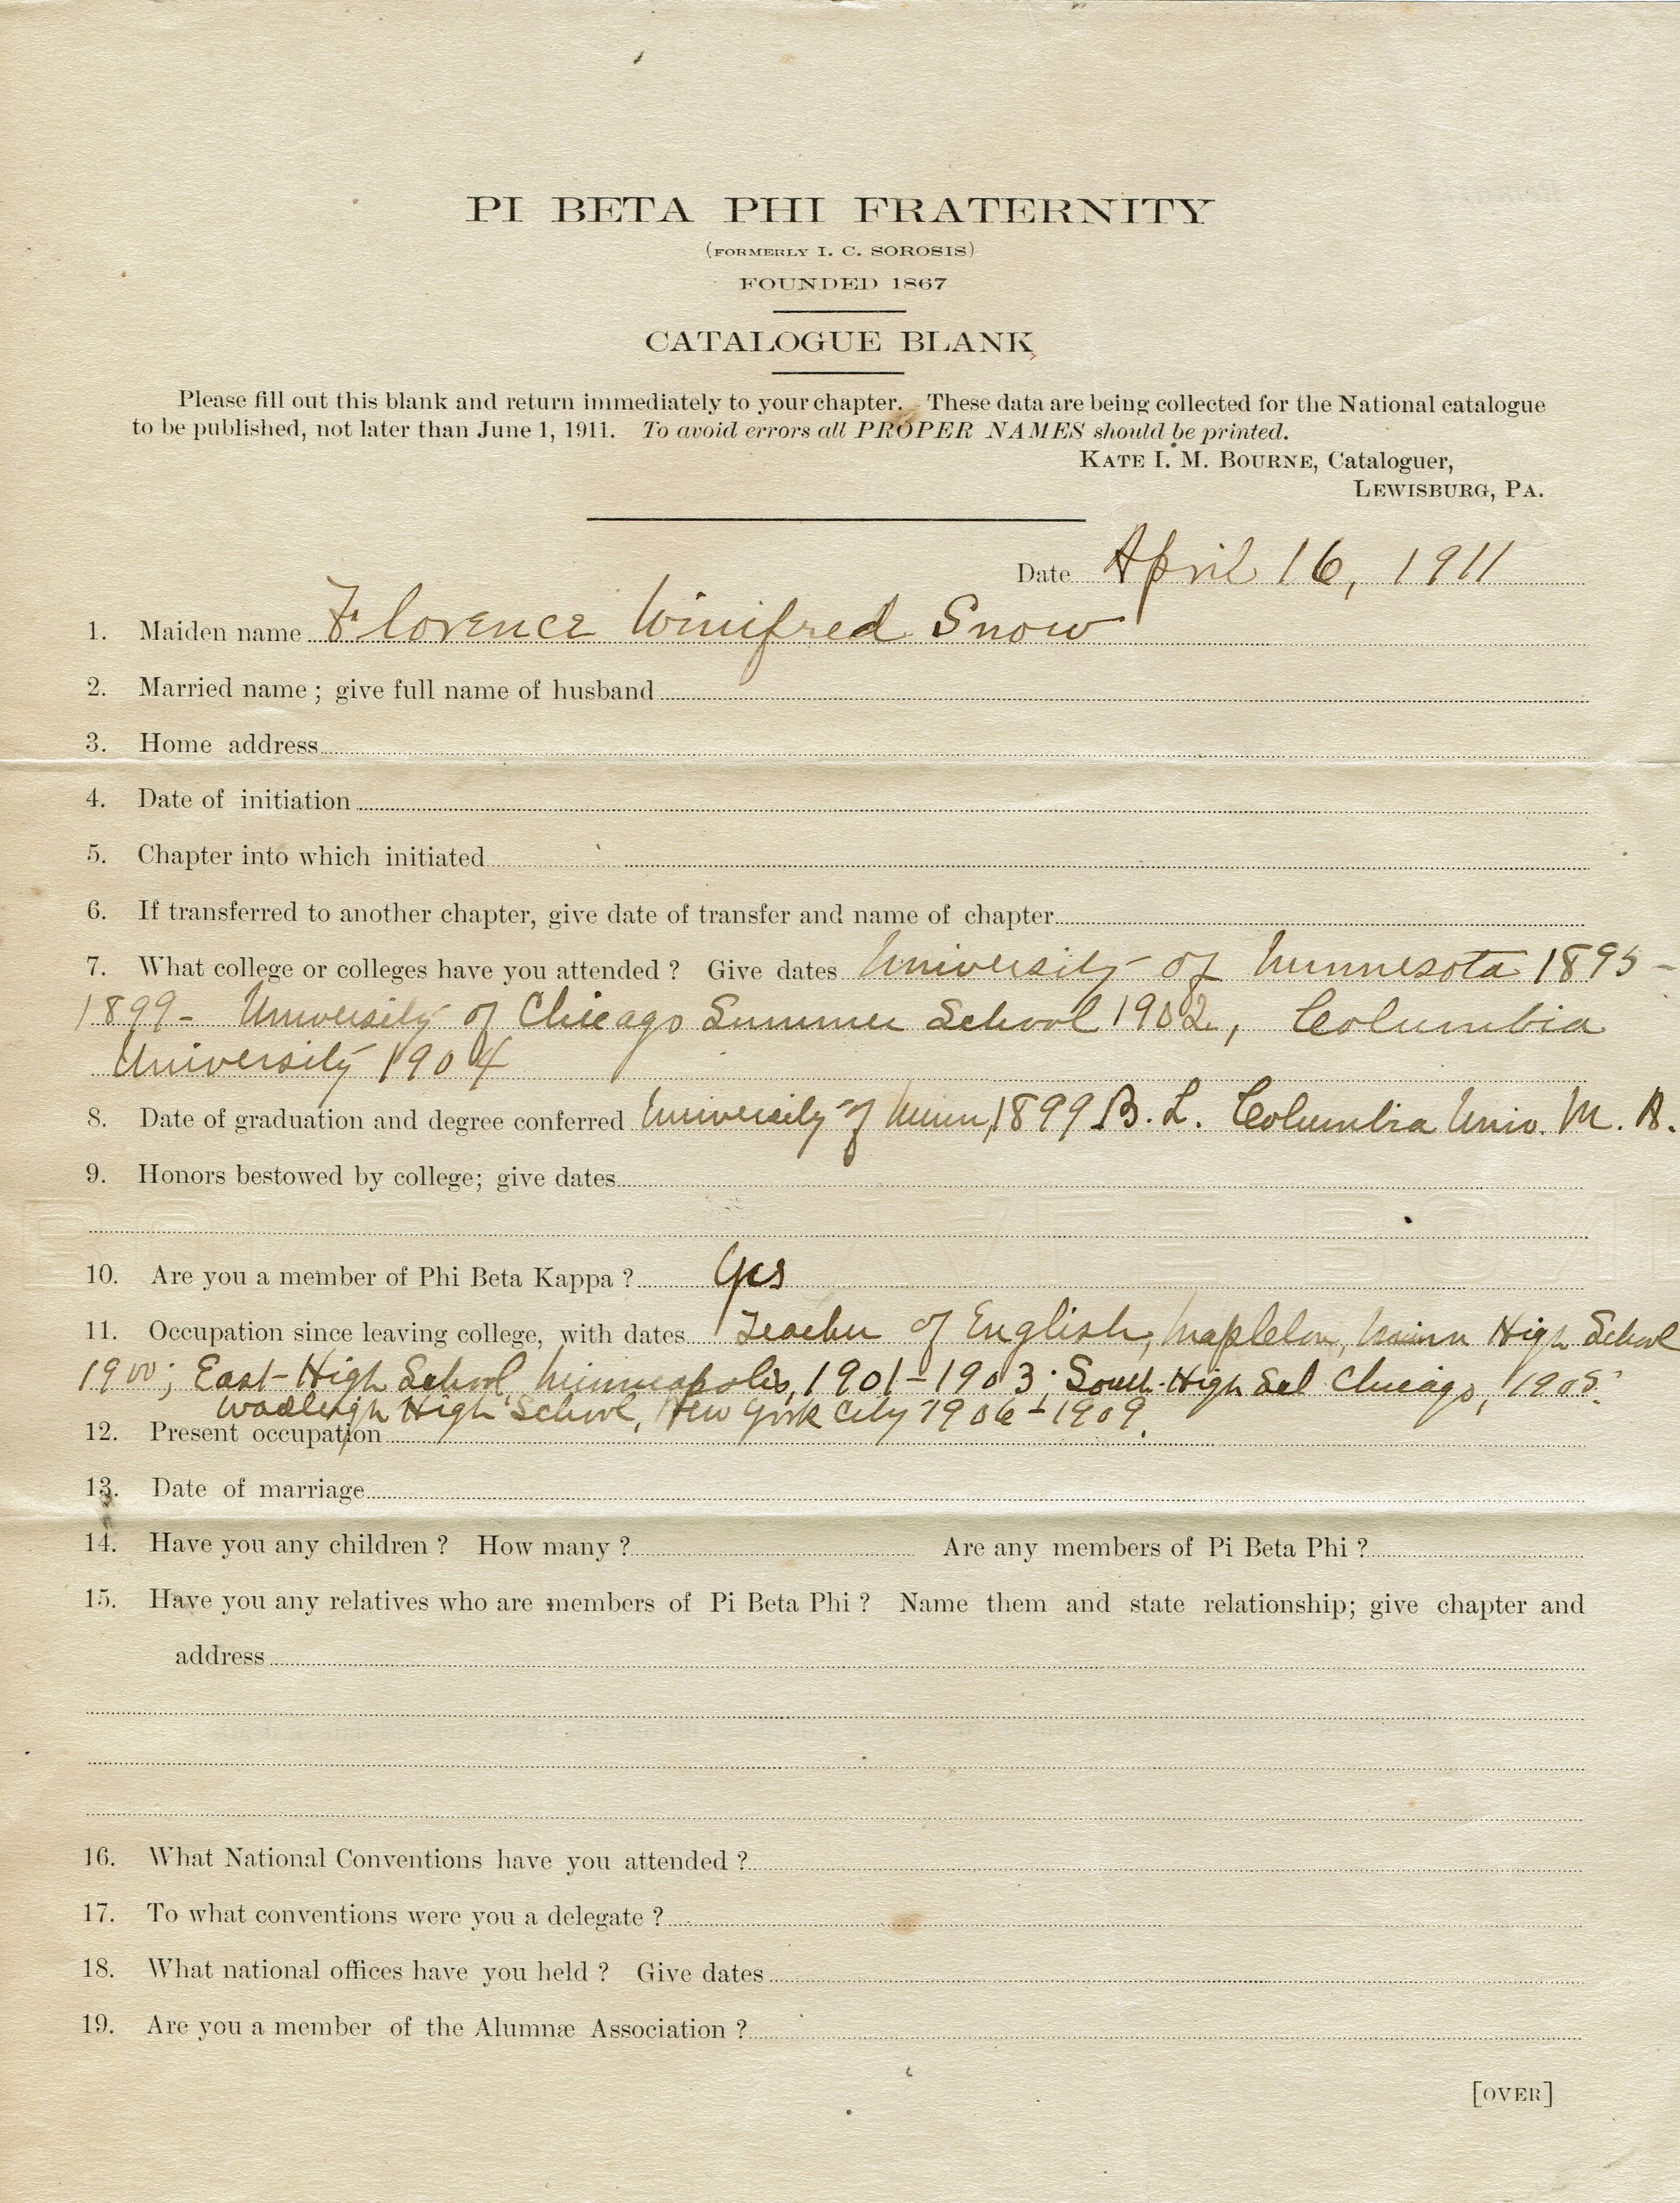 PI BETA PHI FRATERNITY
(FORMERLY I. C. SOROSIS)
FOUNDED 1867
CATALOGUE BLANK
Please fill out this blank and return immediately to your chapter. These data are being collected for the National catalogue
to be published, not later than June 1, 1911. To avoid errors all PROPER NAMES should be printed.
KATE I. M. BOURNE, Cataloguer,
LEWISBURG, PA.
Date April 16, 1911
1. Maiden name Florence Winifred Snow
2. Married name ; give full name of husband
3. Home address
4. Date of initiation
5. Chapter into which initiated
6. If transferred to another chapter, give date of transfer and name of chapter
7. What college or colleges have you attended ? Give dates University of Minnesota 1895 -
1899 - University of Chicago Summer School 1902, Columbia
University 1904
8. Date of graduation and degree conferred University of Minn, 1899 B. L. Columbia Univ. M. A.
9. Honors bestowed by college; give dates
10. Are you a member of Phi Beta Kappa ? Yes
11. Occupation since leaving college, with dates Teacher of English, Mapleton, Minn High School
1900; East High School, Minneapolis, 1901-1903; South High Scl Chicago, 1905.
Wadleigh High School, New York City 1906-1909.
12. Present occupation
13. Date of marriage
14. Have you any children ? How many ? Are any members of Pi Beta Phi ?
15. Have you any relatives who are members of Pi Beta Phi ? Name them and state relationship; give chapter and
address
16. What National Conventions have you attended ?
17. To what conventions were you a delegate ?
18. What national offices have you held ? Give dates
19. Are you a member of the Alumnæ Association ?
[OVER]